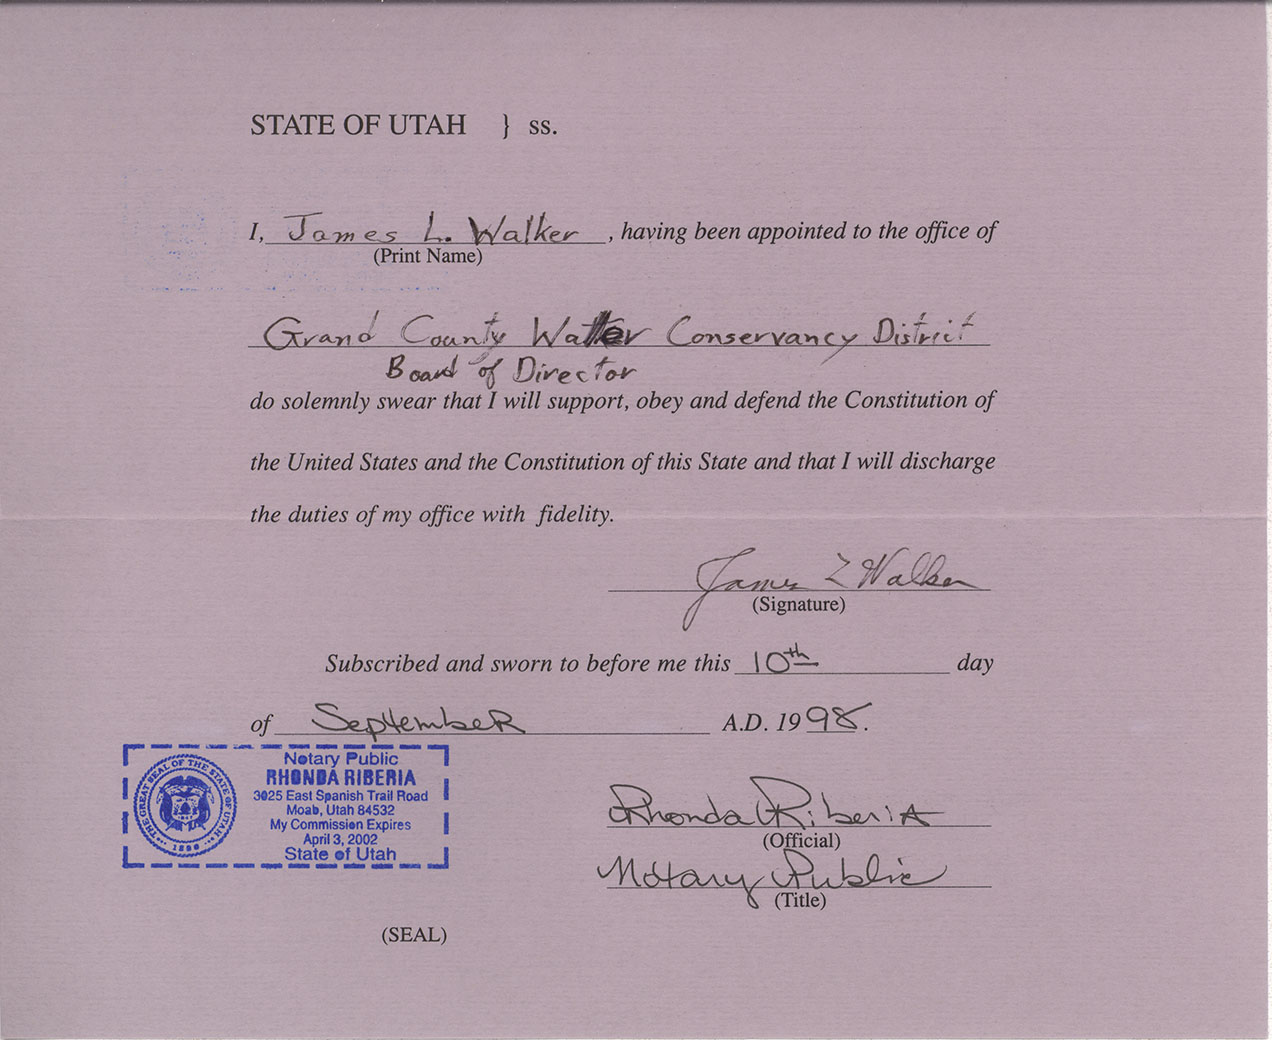 STATE OF UTAH } ss.
I, James L. Walker, having been appointed to the office of
(Print Name)
Grand County Water Conservancy District
Board of Director
do solemnly swear that I will support, obey and defend the Constitution of
the United States and the Constitution of this State and that I will discharge
the duties of my office with fidelity.
James L Walker
(Signature)
Subscribed and sworn to before me this 10th day
of September A.D. 1998.
Notary Public
RHONDA RIBERIA
3025 East Spanish Trail Road
Moab, Utah 84532
My Commission Expires
April 3, 2002
State of Utah
THE GREAT SEAL OF THE STATE OF UTAH
1896
Rhonda Riberia
(Official)
Notary Public
(Title)
(SEAL)